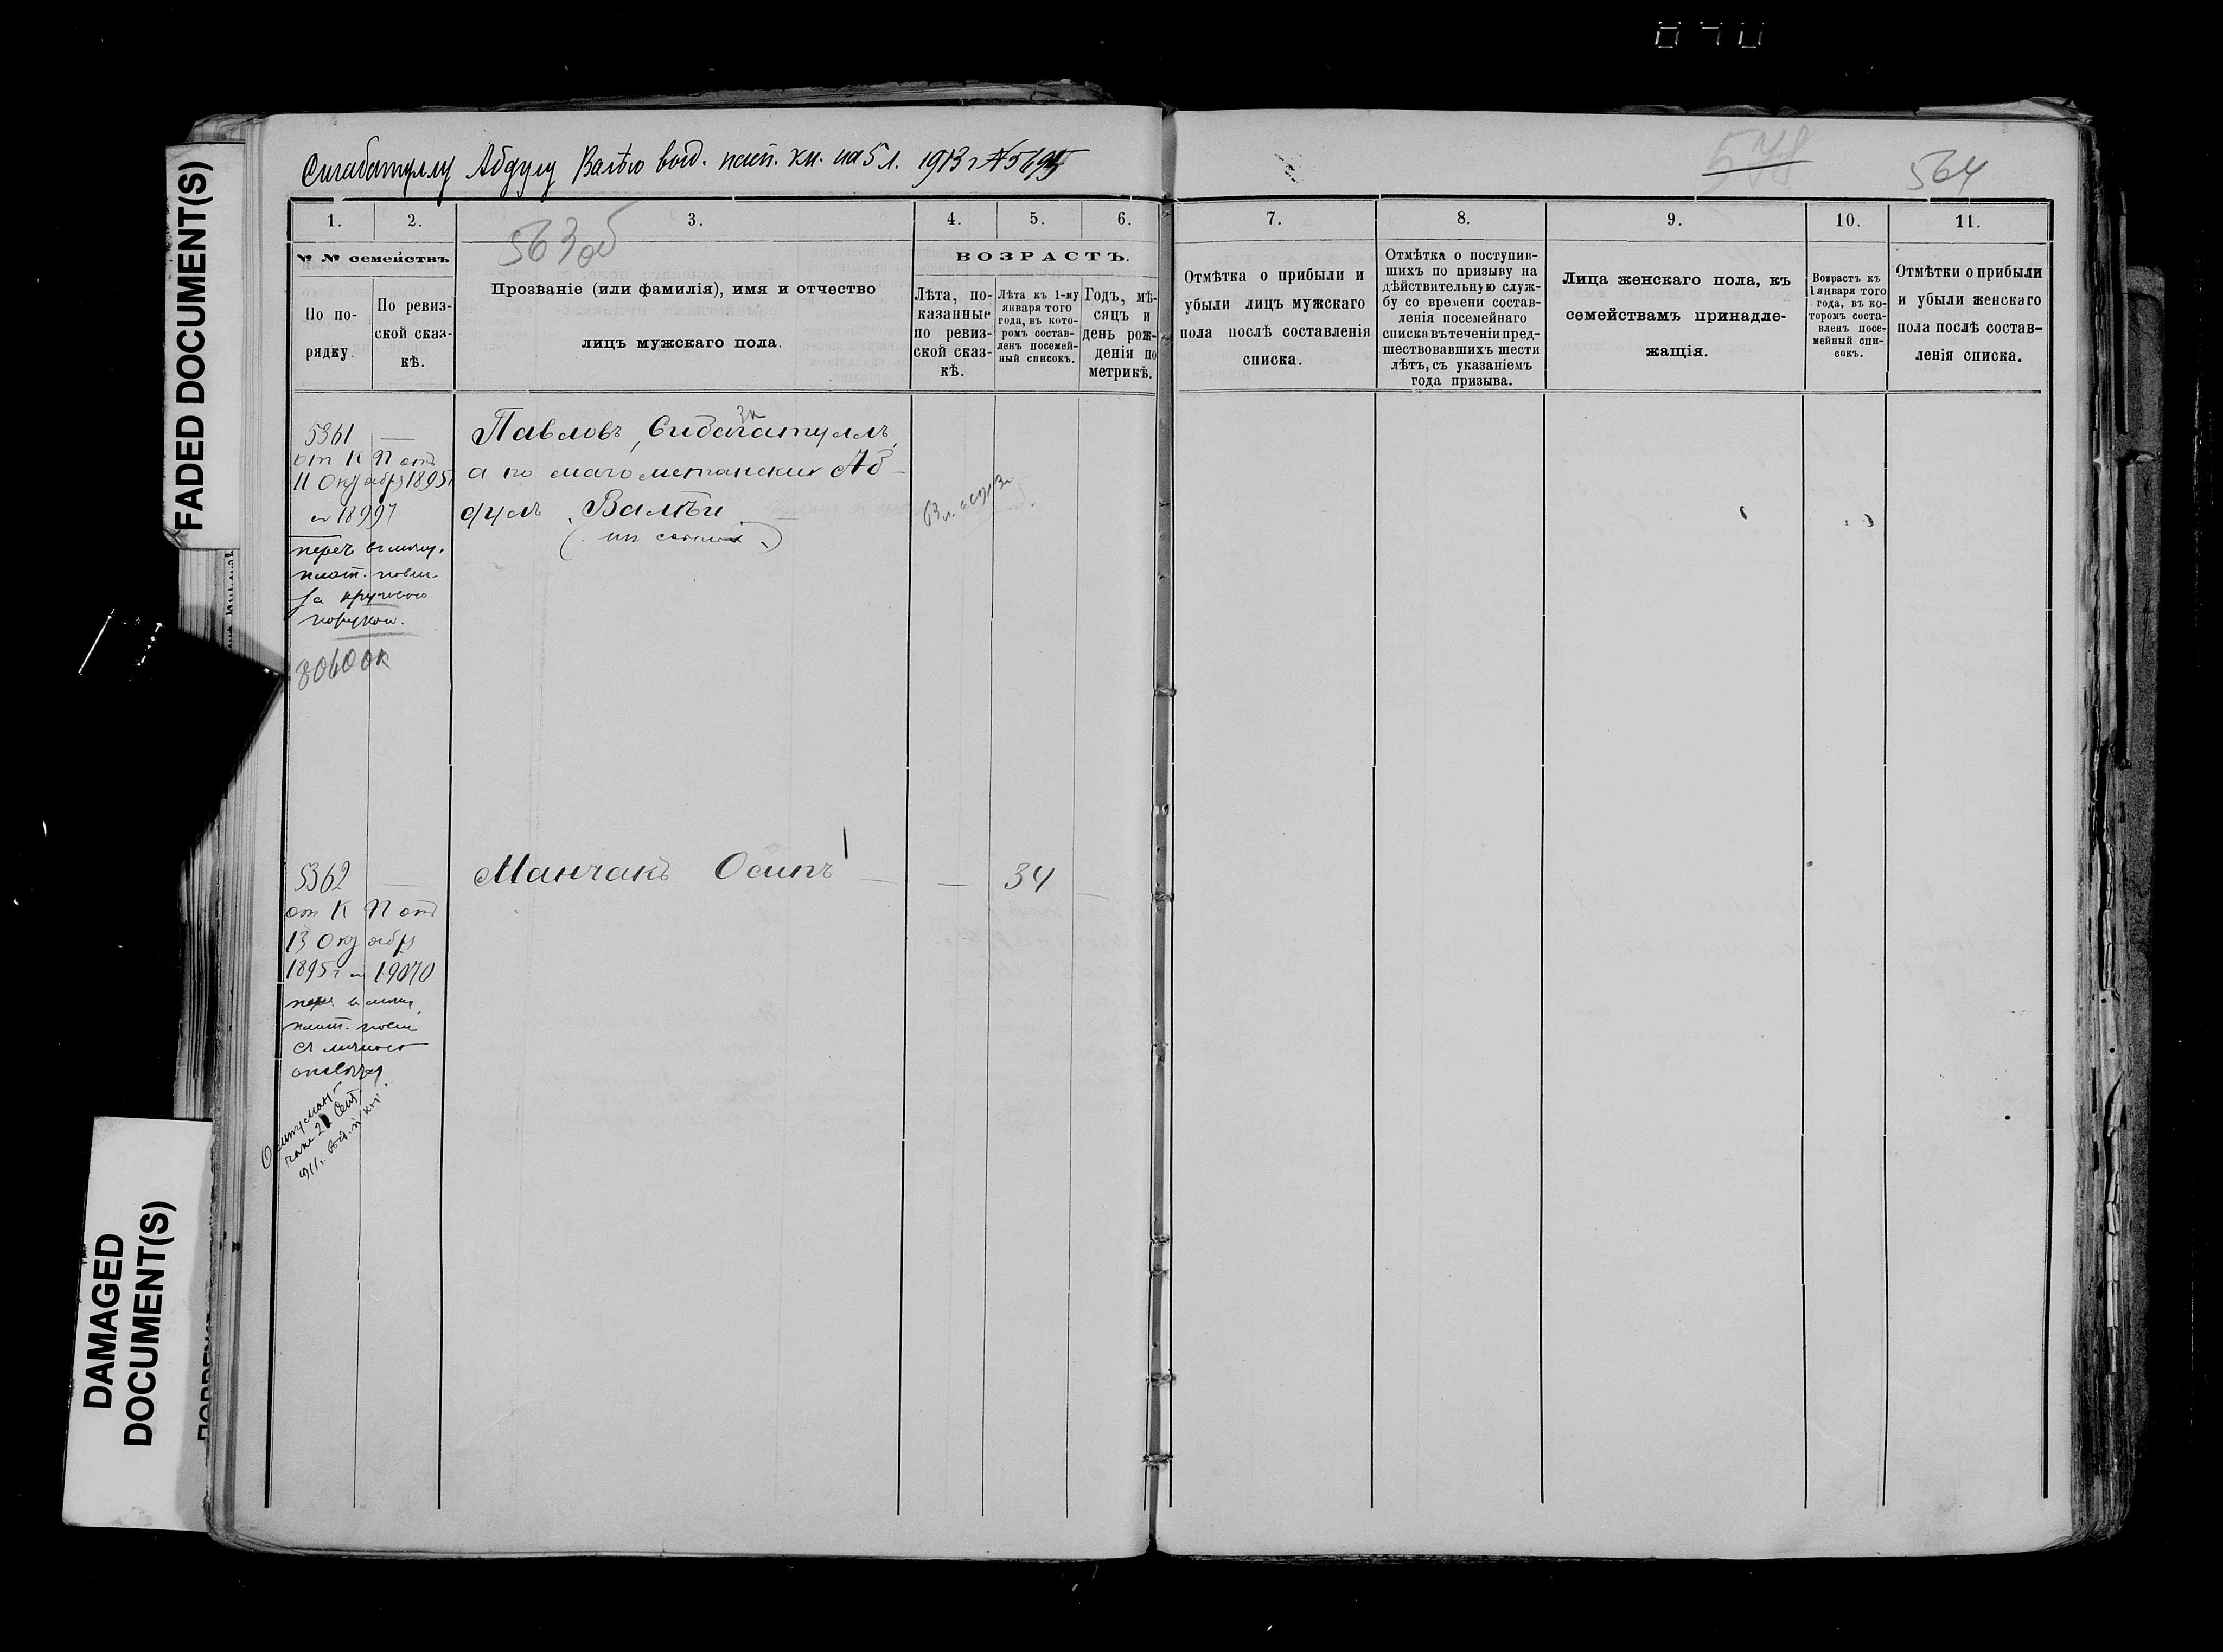 FADED DOCUMENT(S)
DAMAGED
DOCUMENT(S)
Абдулу Валѣю выд. на 5 л. 1913 г
548
564
563 об
1. 2. 3. 4. 5. 6. 7. 8. 9. 10. 11.
№ № семействъ
По по-
рядку.
По ревиз-
ской сказ-
кѣ.
Прозваніе (или фамилія), имя и отчество
лицъ мужскаго пола.
ВОЗРАСТЪ.
Лѣта, по-
казанные
по ревиз-
ской сказ-
кѣ.
Лѣта къ 1-му
января того
года, въ кото-
ромъ состав-
ленъ посемей-
ный списокъ.
Годъ, мѣ-
сяцъ и
день рож-
денія по
метрикѣ.
Отмѣтка о прибыли и
убыли лицъ мужскаго
пола послѣ составленія
списка.
Отмѣтка о поступив-
шихъ по призыву на
дѣйствительную служ-
бу со времени состав-
ленія посемейнаго
списка въ теченіи пред-
шествовавшихъ шести
лѣтъ, съ указаніемъ
года призыва.
Лица женскаго пола, къ
семействамъ принадле-
жащія.
Возрастъ къ
1 января того
года, въ ко-
торомъ соста-
вленъ посе-
мейный спи-
сокъ.
Отмѣтки о прибыли
и убыли женскаго
пола послѣ состав-
ленія списка.
5361 —
от К П отъ
11 Октября 1895 г
18997
за круговою
порукою.
Павловъ,
а по магометански Аб-
дулъ Валѣй
5362 —
от К П отъ
13 Октября
1895 г 19070
съ личною
Манчакъ Осипъ — — 34 —